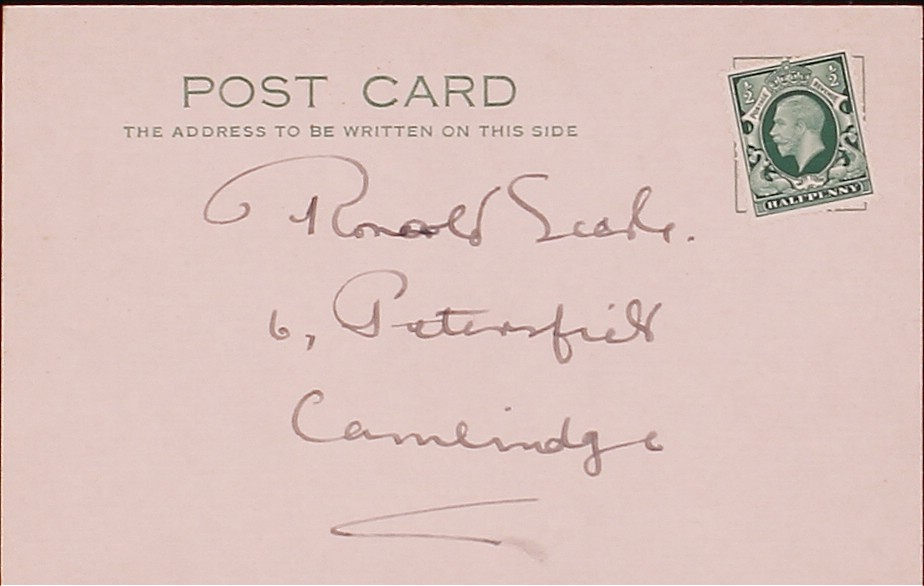 POST CARD
THE ADDRESS TO BE WRITTEN ON THIS SIDE
½ ½
POSTAGE REVENUE
HALFPENNY
Ronald Searle.
6, Petersfield
Cambridge